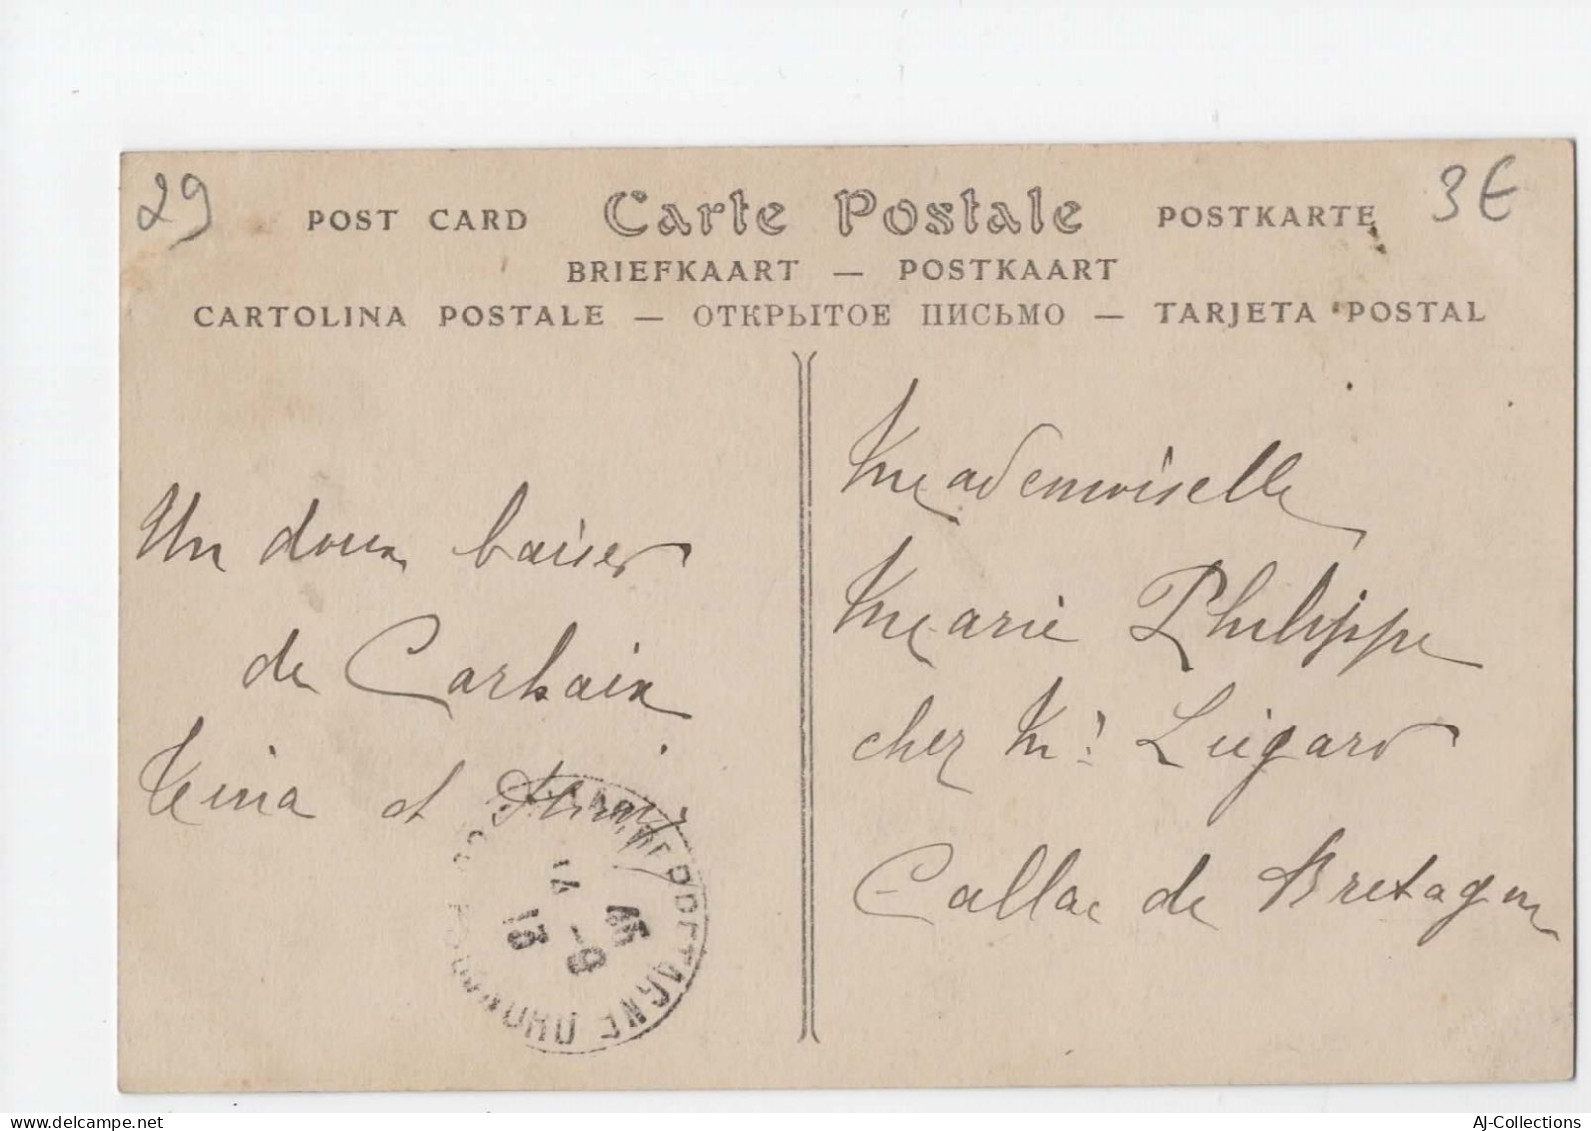 29
POST CARD Carte Postale POSTKARTE
3€
BRIEFKAART — POSTKAART
CARTOLINA POSTALE — ОТКРЫТОЕ ПИСЬМО — TARJETA POSTAL
Un doux baiser
de Carhaix
et
Mademoiselle
Marie Philippe
chez Mr
Callac de Bretagne
14
45
-9
13
www.delcampe.net
AJ-Collections